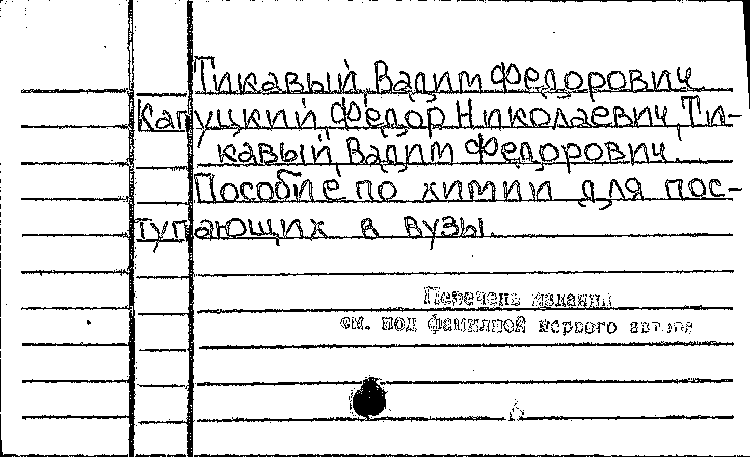 Тикавый, Вадим Федорович
Капуцкий, Федор Николаевич, Ти-
кавый, Вадим Федорович.
Пособие по химии для пос-
тупающих в вузы.
Перечень издания
см. под фамилией первого автора
6